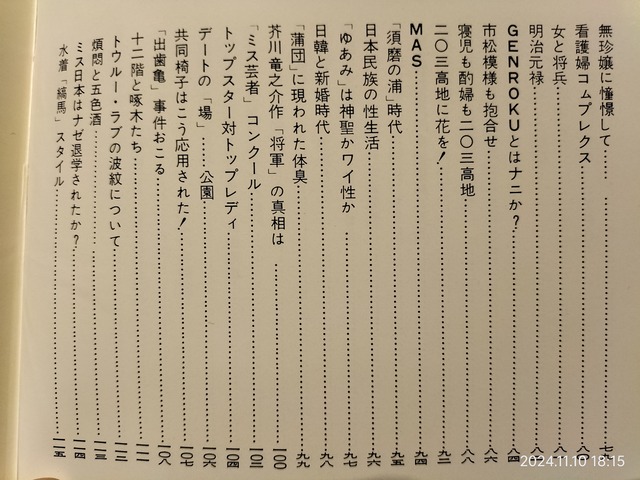 無珍嬢に憧憬して……七八
看護婦コムプレクス……八〇
女と将兵……八一
明治元禄……八二
GENROKUとはナニか？……八四
市松模様も抱合せ……八六
寝児も酌婦も二〇三高地……八八
二〇三高地に花を！……九二
MAS……九四
「須磨の浦」時代……九五
日本民族の性生活……九六
「ゆあみ」は神聖かワイ性か……九七
日韓と新婚時代……九八
「蒲団」に現われた体臭……九九
芥川竜之介作「将軍」の真相は……一〇〇
「ミス芸者」コンクール……一〇三
トップスター対トップレディ……一〇四
デートの「場」……公園……一〇六
共同椅子はこう応用された！……一〇七
「出歯亀」事件おこる……一〇八
十二階と啄木たち……一一一
トウルー・ラブの波紋について……一一二
煩悶と五色酒……一一三
ミス日本はナゼ退学されたか？……一一四
水着「縞馬」スタイル……一一五
2024.11.10 18:15